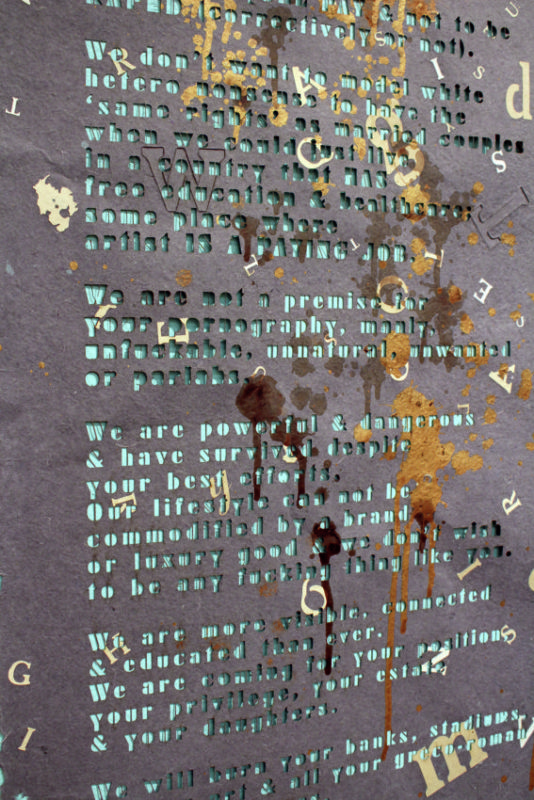 RAPED (correctively or not).
We don't want to model white
hetero nonsense to have the
'same rights' as married couples
when we could just live
in a country that HAS
free education & healthcare,
some place where
artist IS A PAYING JOB.
We are not a premise for
your pornography, manly,
unfuckable, unnatural, unwanted
or
We are powerful & dangerous
& have survived despite
your best efforts.
Our lifestyle can not be
commodified by a brand
or luxury good & we don't wish
to be any fucking thing like you.
We are more visible, connected
& educated than ever.
We are coming for your positions
your privilege, your estate
& your daughters.
We will burn your banks, stadiums,
art & all your greco-roman